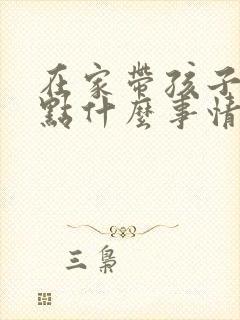 在家帶孩子
點什麼事情
三梟